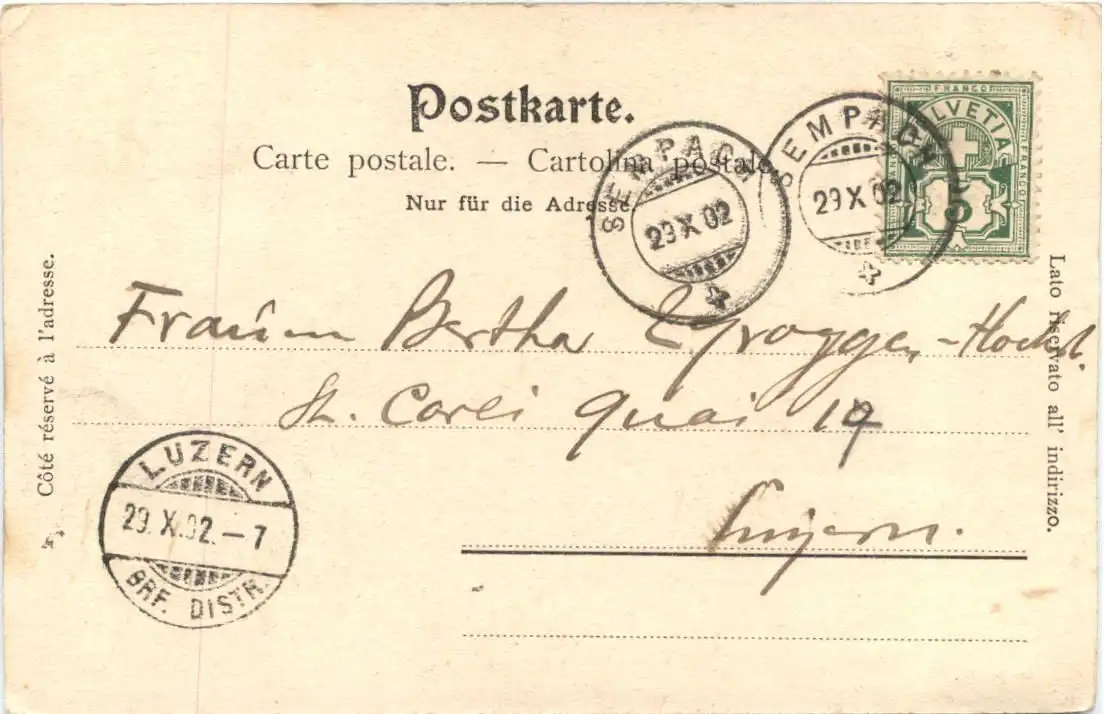 Postkarte.
Carte postale. — Cartolina postale.
Nur für die Adresse.
SEMPACH
29 X 02
SEMPACH
29 X 02
FRANCO
HELVETIA
FRANCO
FRANCO
5
Côté réservé à l'adresse.
Lato riservato all' indirizzo.
Bertha
St. Carli Quai 17
Luzern.
LUZERN
29. X. 02. – 7
BRF. DISTR.